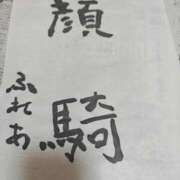 顔騎
ふれあ